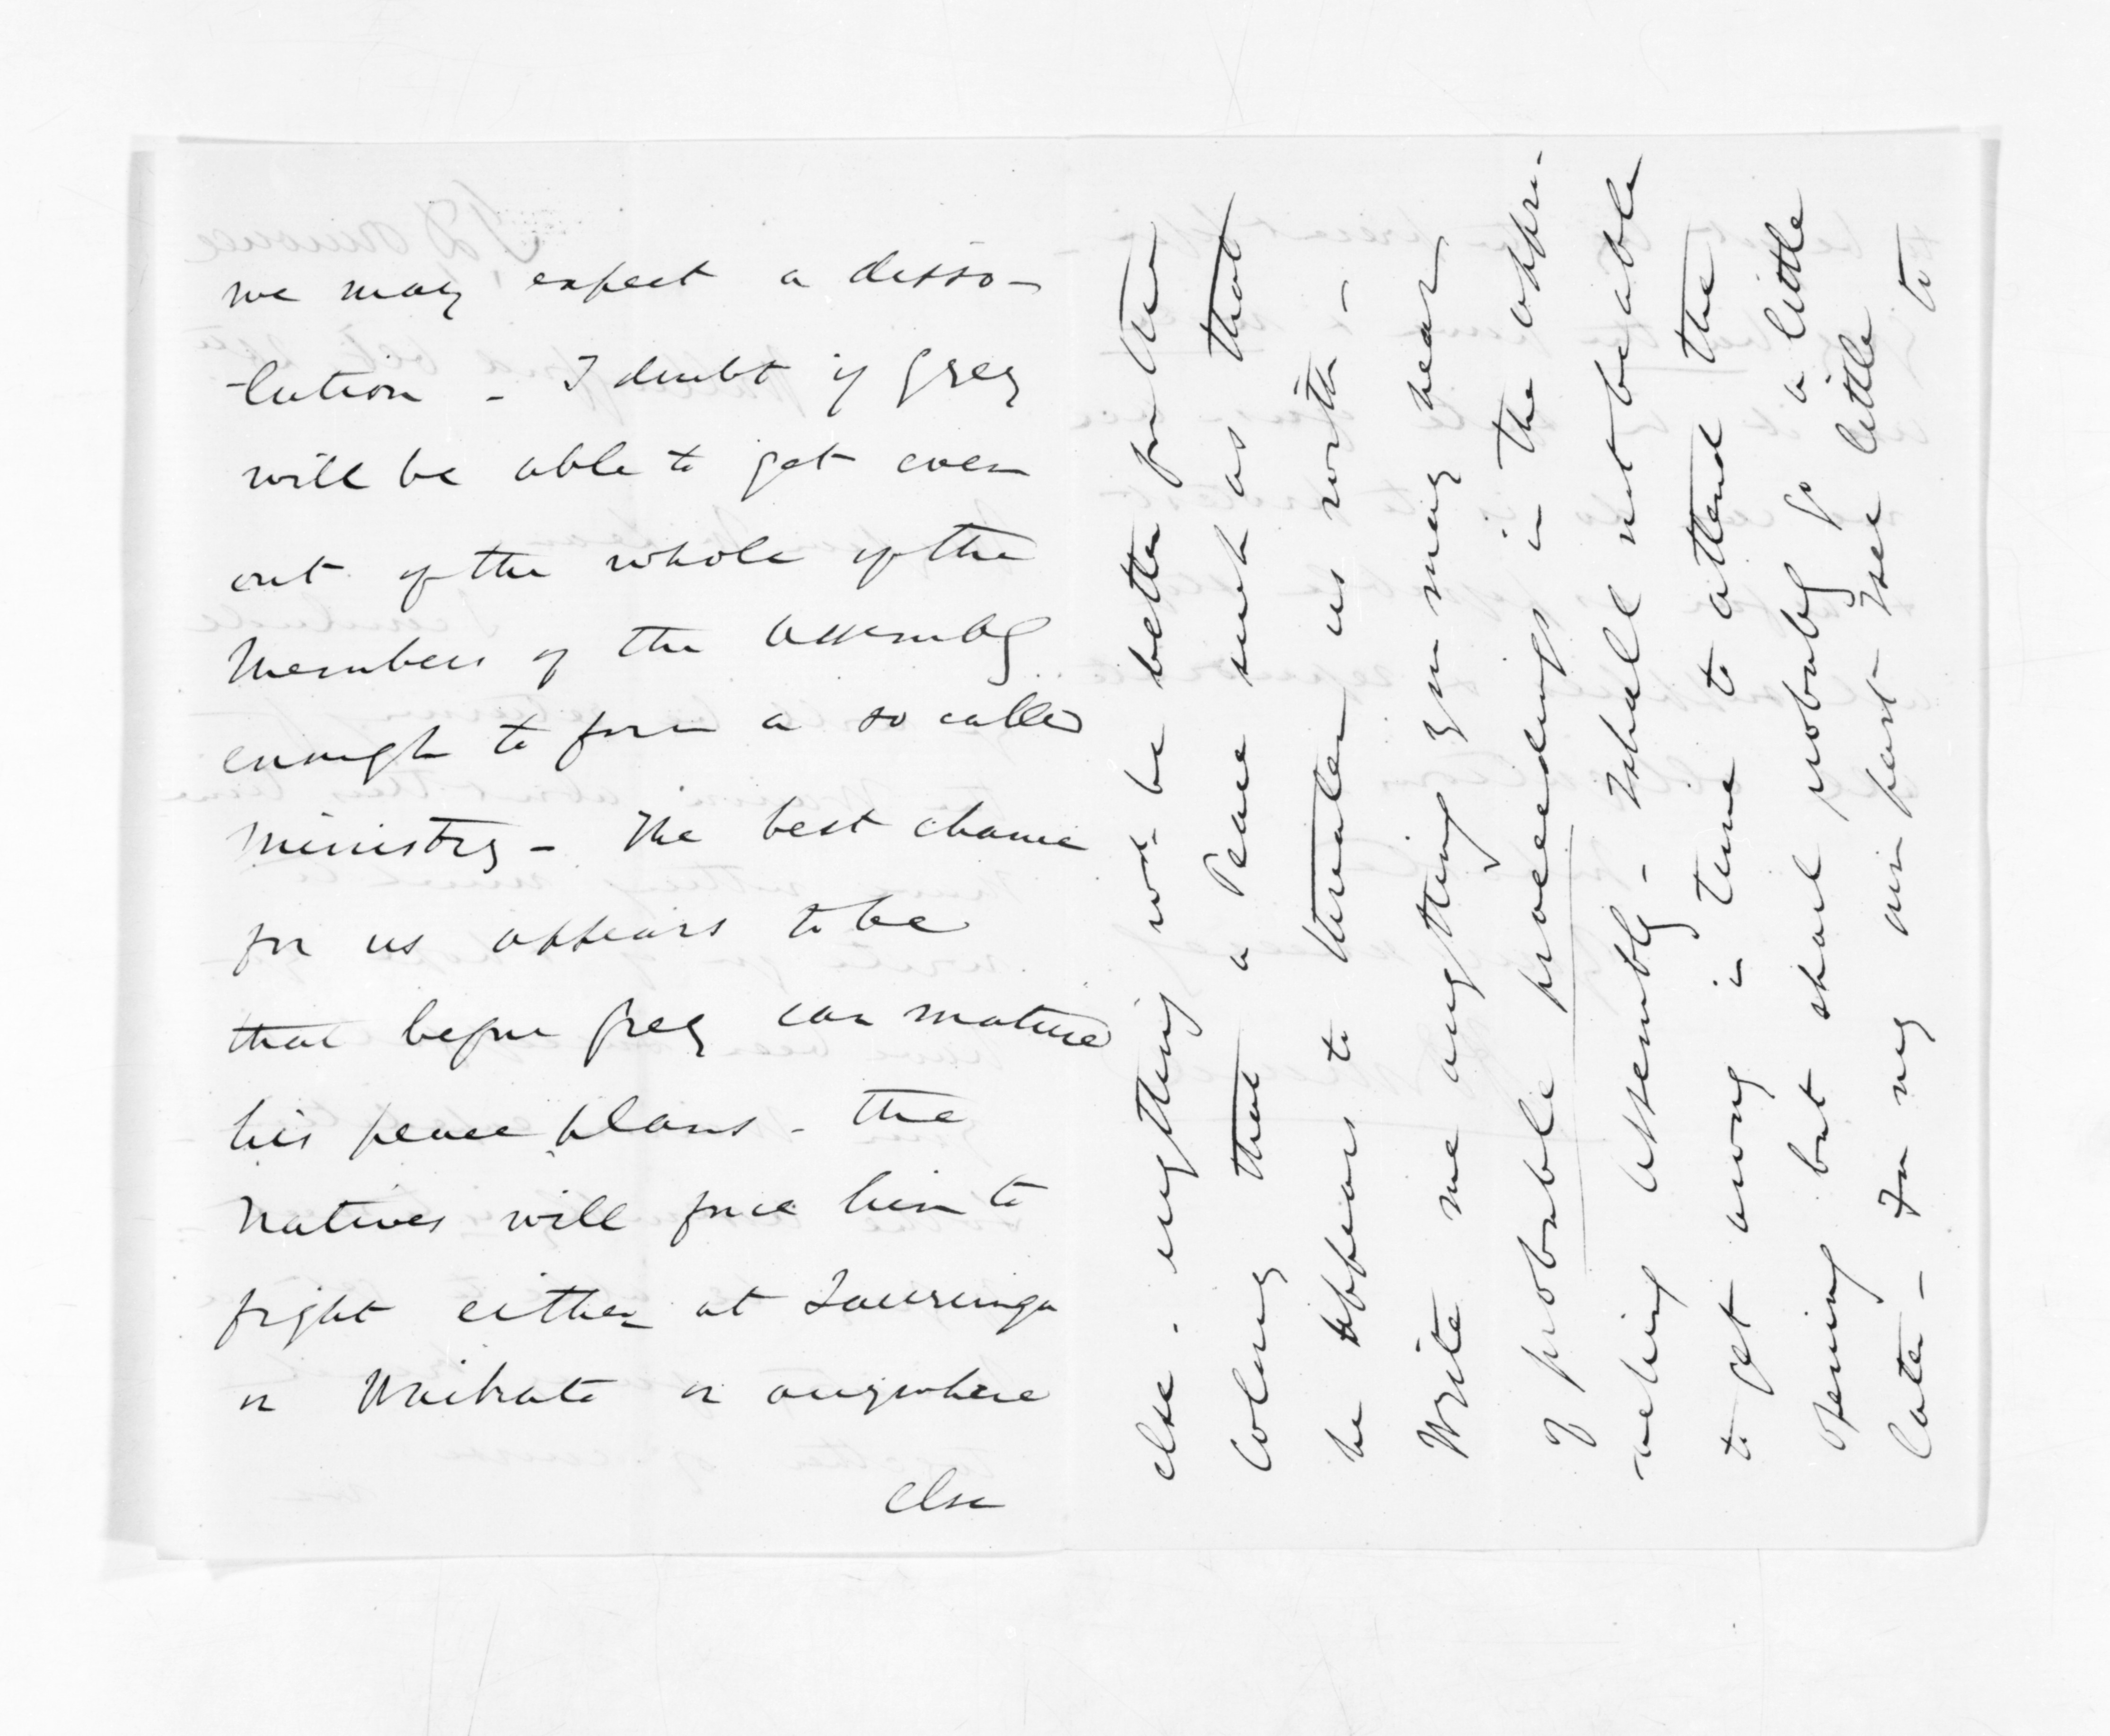 we may expect a disso-
-lution - I doubt if Grey
will be able to get even
out of the whole of the
Members of the Assembly
enough to form a so called
Ministry - The best chance
for us appears to be
that before Grey can mature
his peace plans - the
Natives will force him to
fight either at Tauranga
or Waikato or anywhere
else
else - anything wd. be better for the
Colony than a Peace such as that
he appears to threaten us with -
Write me anything you may hear
of probable proceedings in the appro-
aching Assembly - I shall not be able
to get away in time to attend the
opening but shall probably go a little
later - For my own part I see little
to